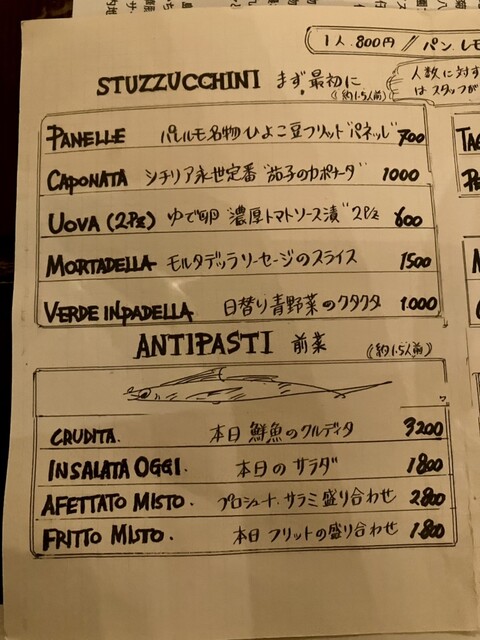 1人. 800円 // パン、レモ
STUZZUCCHINI まず,最初に
(約1.5人前)
人数に対す
はスタッフが
PANELLE パレルモ名物ひよこ豆フリット"パネッレ" 700
CAPONATA シチリア永世定番"茄子のカポナータ" 1000
UOVA (2Pz) ゆで卵"濃厚トマトソース漬" 2Pz 600
MORTADELLA モルタデッラソーセージのスライス 1500
VERDE INPADELLA 日替り青野菜のクタクタ 1.000
ANTIPASTI 前菜 (約1.5人前)
CRUDITA. 本日鮮魚のクルディタ 3200
INSALATA OGGI. 本日のサラダ 1800
AFETTATO MISTO. プロシュート.サラミ盛り合わせ 2800
FRITTO MISTO. 本日フリットの盛り合わせ 1.800